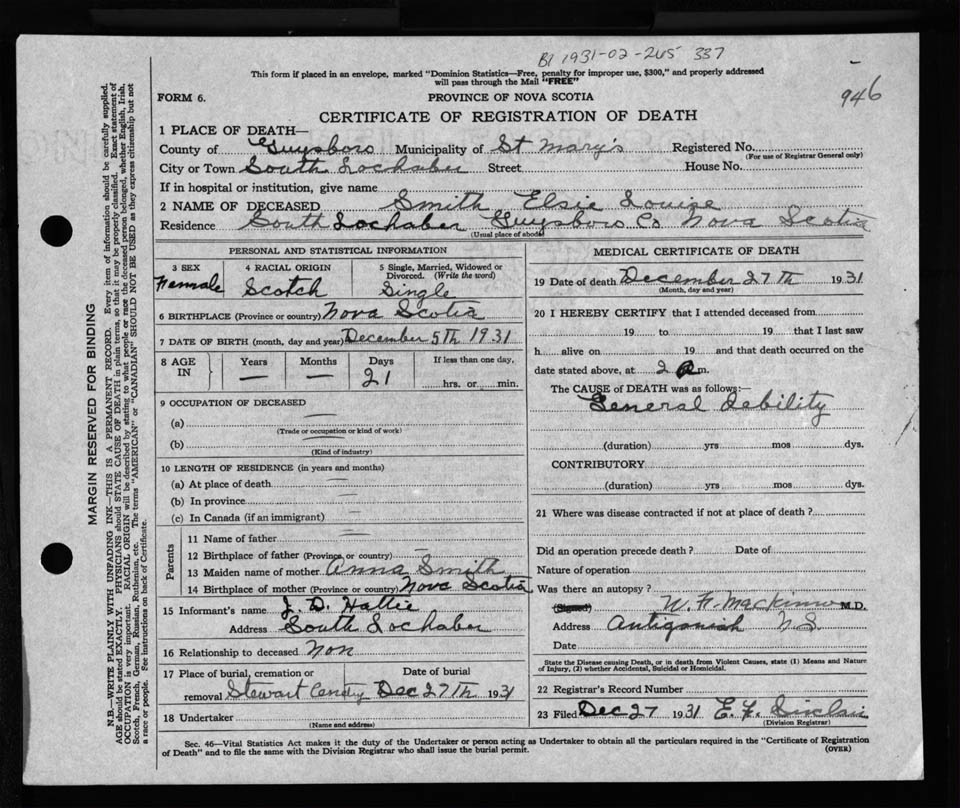 B1 1931-02-245 337
This form if placed in an envelope, marked "Dominion Statistics—Free, penalty for improper use, $300," and properly addressed
will pass through the Mail "FREE"
946
FORM 6.
PROVINCE OF NOVA SCOTIA
CERTIFICATE OF REGISTRATION OF DEATH
1 PLACE OF DEATH—
County of Guysboro Municipality of St Mary's Registered No.
(For use of Registrar General only)
City or Town South Lochaber Street House No.
If in hospital or institution, give name
2 NAME OF DECEASED Smith Elsie Louize
Residence South Lochaber Guysboro Co Nova Scotia
(Usual place of abode)
PERSONAL AND STATISTICAL INFORMATION
3 SEX Female
4 RACIAL ORIGIN Scotch
5 Single, Married, Widowed or Divorced. (Write the word) Single
6 BIRTHPLACE (Province or country) Nova Scotia
7 DATE OF BIRTH (month, day and year) December 5th 1931
8 AGE IN Years — Months — Days 21 If less than one day, hrs. or min.
9 OCCUPATION OF DECEASED
(a) —
(Trade or occupation or kind of work)
(b) —
(Kind of industry)
10 LENGTH OF RESIDENCE (in years and months)
(a) At place of death
(b) In province
(c) In Canada (if an immigrant)
Parents
11 Name of father
12 Birthplace of father (Province or country)
13 Maiden name of mother Anna Smith
14 Birthplace of mother (Province or country) Nova Scotia
15 Informant's name J. D. Hattie
Address South Lochaber
16 Relationship to deceased Non
17 Place of burial, cremation or removal Date of burial
Stewart Dec 27th 1931
18 Undertaker
(Name and address)
MEDICAL CERTIFICATE OF DEATH
19 Date of death December 27th 1931
(Month, day and year)
20 I HEREBY CERTIFY that I attended deceased from
19 to 19 that I last saw
h alive on 19 and that death occurred on the
date stated above, at 2 m.
The CAUSE of DEATH was as follows:—
General Debility
(duration) yrs mos dys.
CONTRIBUTORY
(duration) yrs mos dys.
21 Where was disease contracted if not at place of death?
Did an operation precede death? Date of
Nature of operation
Was there an autopsy?
(Signed) W. F. MacKinnon M.D.
Address Antigonish N.S.
Date
State the Disease causing Death, or in death from Violent Causes, state (1) Means and Nature
of Injury, (2) whether Accidental, Suicidal or Homicidal.
22 Registrar's Record Number
23 Filed Dec 27 1931 Sinclair
(Division Registrar)
Sec. 46—Vital Statistics Act makes it the duty of the Undertaker or person acting as Undertaker to obtain all the particulars required in the "Certificate of Registration
of Death" and to file the same with the Division Registrar who shall issue the burial permit.
(OVER)
MARGIN RESERVED FOR BINDING
N.B.—WRITE PLAINLY WITH UNFADING INK—THIS IS A PERMANENT RECORD. Every item of information should be carefully supplied.
AGE should be stated EXACTLY. PHYSICIANS should STATE CAUSE OF DEATH in plain terms, so that it may be properly classified. Exact statement of
OCCUPATION is very important. RACIAL ORIGIN will be described by stating to what people or race the deceased person belonged, whether English, Irish,
Scotch, French, German, Russian, Ruthenian, etc. The terms "AMERICAN" or "CANADIAN" SHOULD NOT BE USED as they express citizenship but not
a race or people. See instructions on back of Certificate.